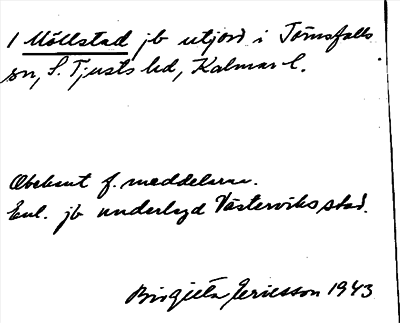 1 Möllstad jb utjord i Törnsfalls
sn, S. Tjusts hd, Kalmar l.
Obekant f. meddelarna.
Enl. jb underlyd Västerviks stad.
Birgitta Ericsson 1943